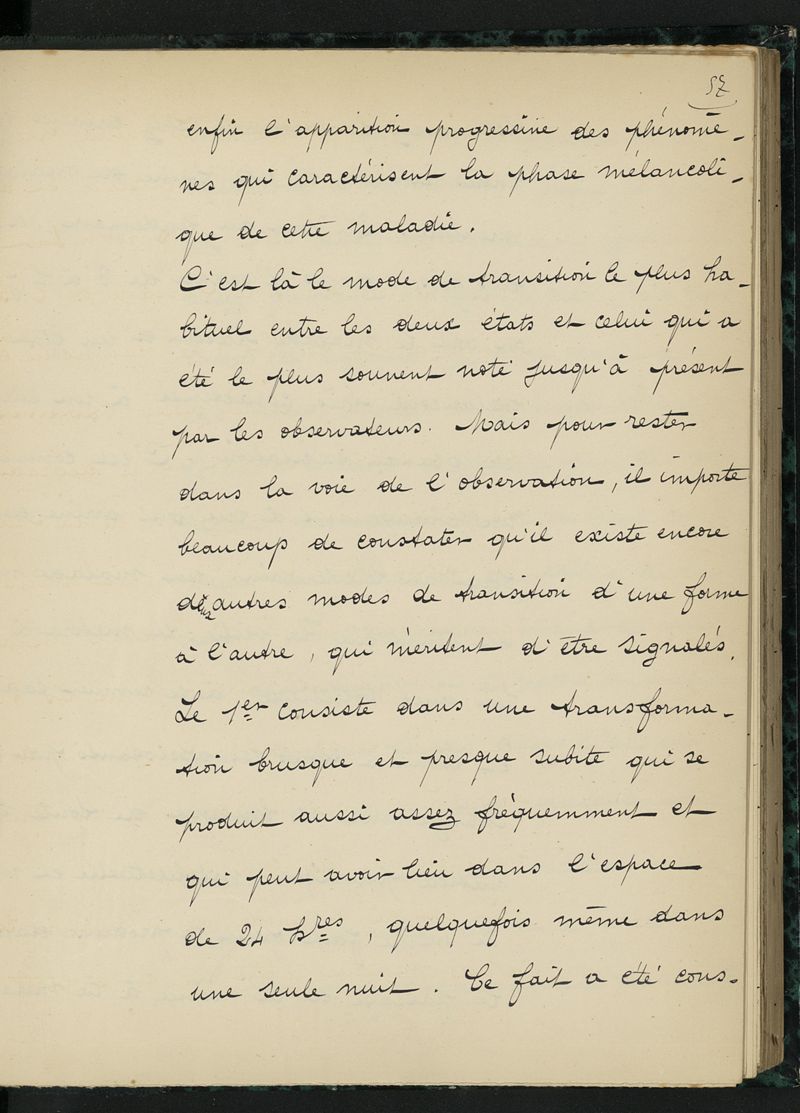 57
enfin l'apparition progressive des phénomè-
nes qui caractérisent la phase mélancoli-
que de cette maladie.
C'est là le mode de transition le plus ha-
bituel entre les deux états et celui qui a
été le plus souvent noté jusqu'à présent
par les observateurs. Mais pour rester
dans la voie de l'observation, il importe
beaucoup de constater qu'il existe encore
deux autres modes de transition d'une forme
à l'autre, qui méritent d'être signalés.
Le 1er consiste dans une transforma-
tion brusque et presque subite qui se
produit aussi assez fréquemment et
qui peut avoir lieu dans l'espace
de 24 hres, quelquefois même dans
une seule nuit. Ce fait a été cons-